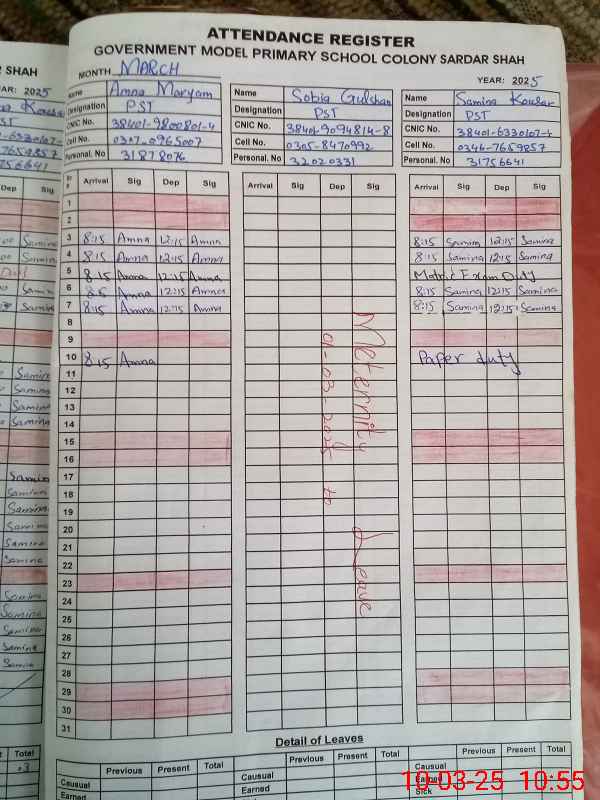 ATTENDANCE REGISTER
GOVERNMENT MODEL PRIMARY SCHOOL COLONY SARDAR SHAH
MONTH MARCH
YEAR: 2025
Name Amna Maryam
Designation PST
CNIC No. 38401-9800801-4
Cell No. 0307-0965007
Personal. No 31878076
Name Sobia Gulshan
Designation PST
CNIC No. 38401-9094814-8
Cell No. 0305-8470992
Personal. No 32020331
Name Samina Kousar
Designation PST
CNIC No. 38401-6330167-4
Cell No. 0346-7659857
Personal. No 31756641
Sr # Arrival Sig Dep Sig Arrival Sig Dep Sig Arrival Sig Dep Sig
1
2
3 8:15 Amna 12:15 Amna 8:15 Samina 12:15 Samina
4 8:15 Amna 12:15 Amna 8:15 Samina 12:15 Samina
5 8:15 Amna 12:15 Amna Matric Exam Duty
6 8:15 Amna 12:15 Amna 8:15 Samina 12:15 Samina
7 8:15 Amna 12:15 Amna 8:15 Samina 12:15 Samina
8
9
10 8:15 Amna Paper duty
11
12
13
14
15
16
17
18
19
20
21
22
23
24
25
26
27
28
29
30
31
Meternity Leave
01-03-2025 to
Detail of Leaves
Previous Present Total Previous Present Total Previous Present Total
Causual Causual Causual
Earned Earned Sick
10-03-25 10:55
SHAH
YEAR: 2025
Dep Sig
Samina
Samina
Duty
Samina
Samina
Samina
Samina
Samina
Samina
Samina
Samina
Samina
Samina
Samina
Samina
Samina
Samina
Samina
Samina
Samina
Total